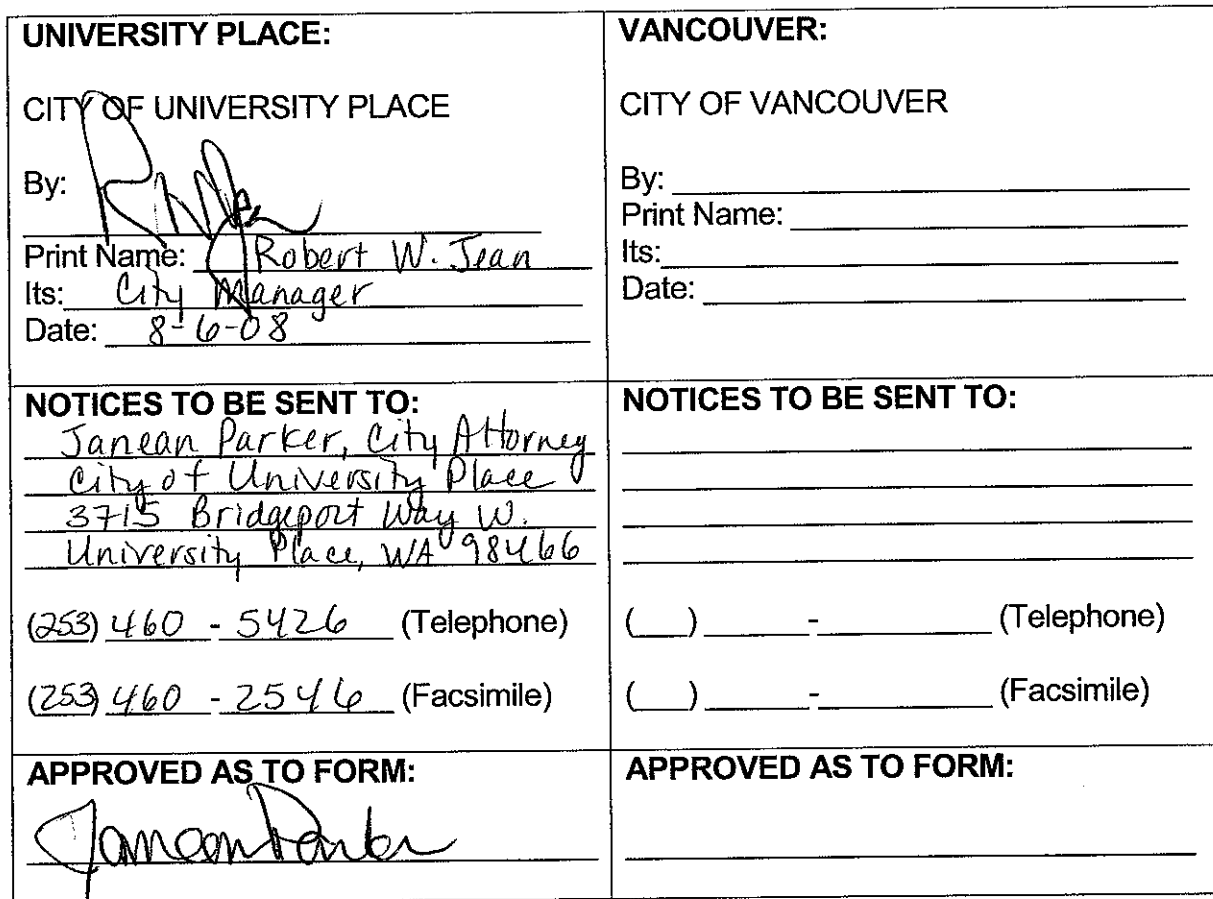 UNIVERSITY PLACE:
CITY OF UNIVERSITY PLACE
By:
Print Name: Robert W. Jean
Its: City Manager
Date: 8-6-08
VANCOUVER:
CITY OF VANCOUVER
By:
Print Name:
Its:
Date:
NOTICES TO BE SENT TO:
Janean Parker, City Attorney
City of University Place
3715 Bridgeport Way W.
University Place, WA 98466
(253) 460 - 5426 (Telephone)
(253) 460 - 2546 (Facsimile)
NOTICES TO BE SENT TO:
( ) - (Telephone)
( ) - (Facsimile)
APPROVED AS TO FORM:
Janean Parker
APPROVED AS TO FORM: